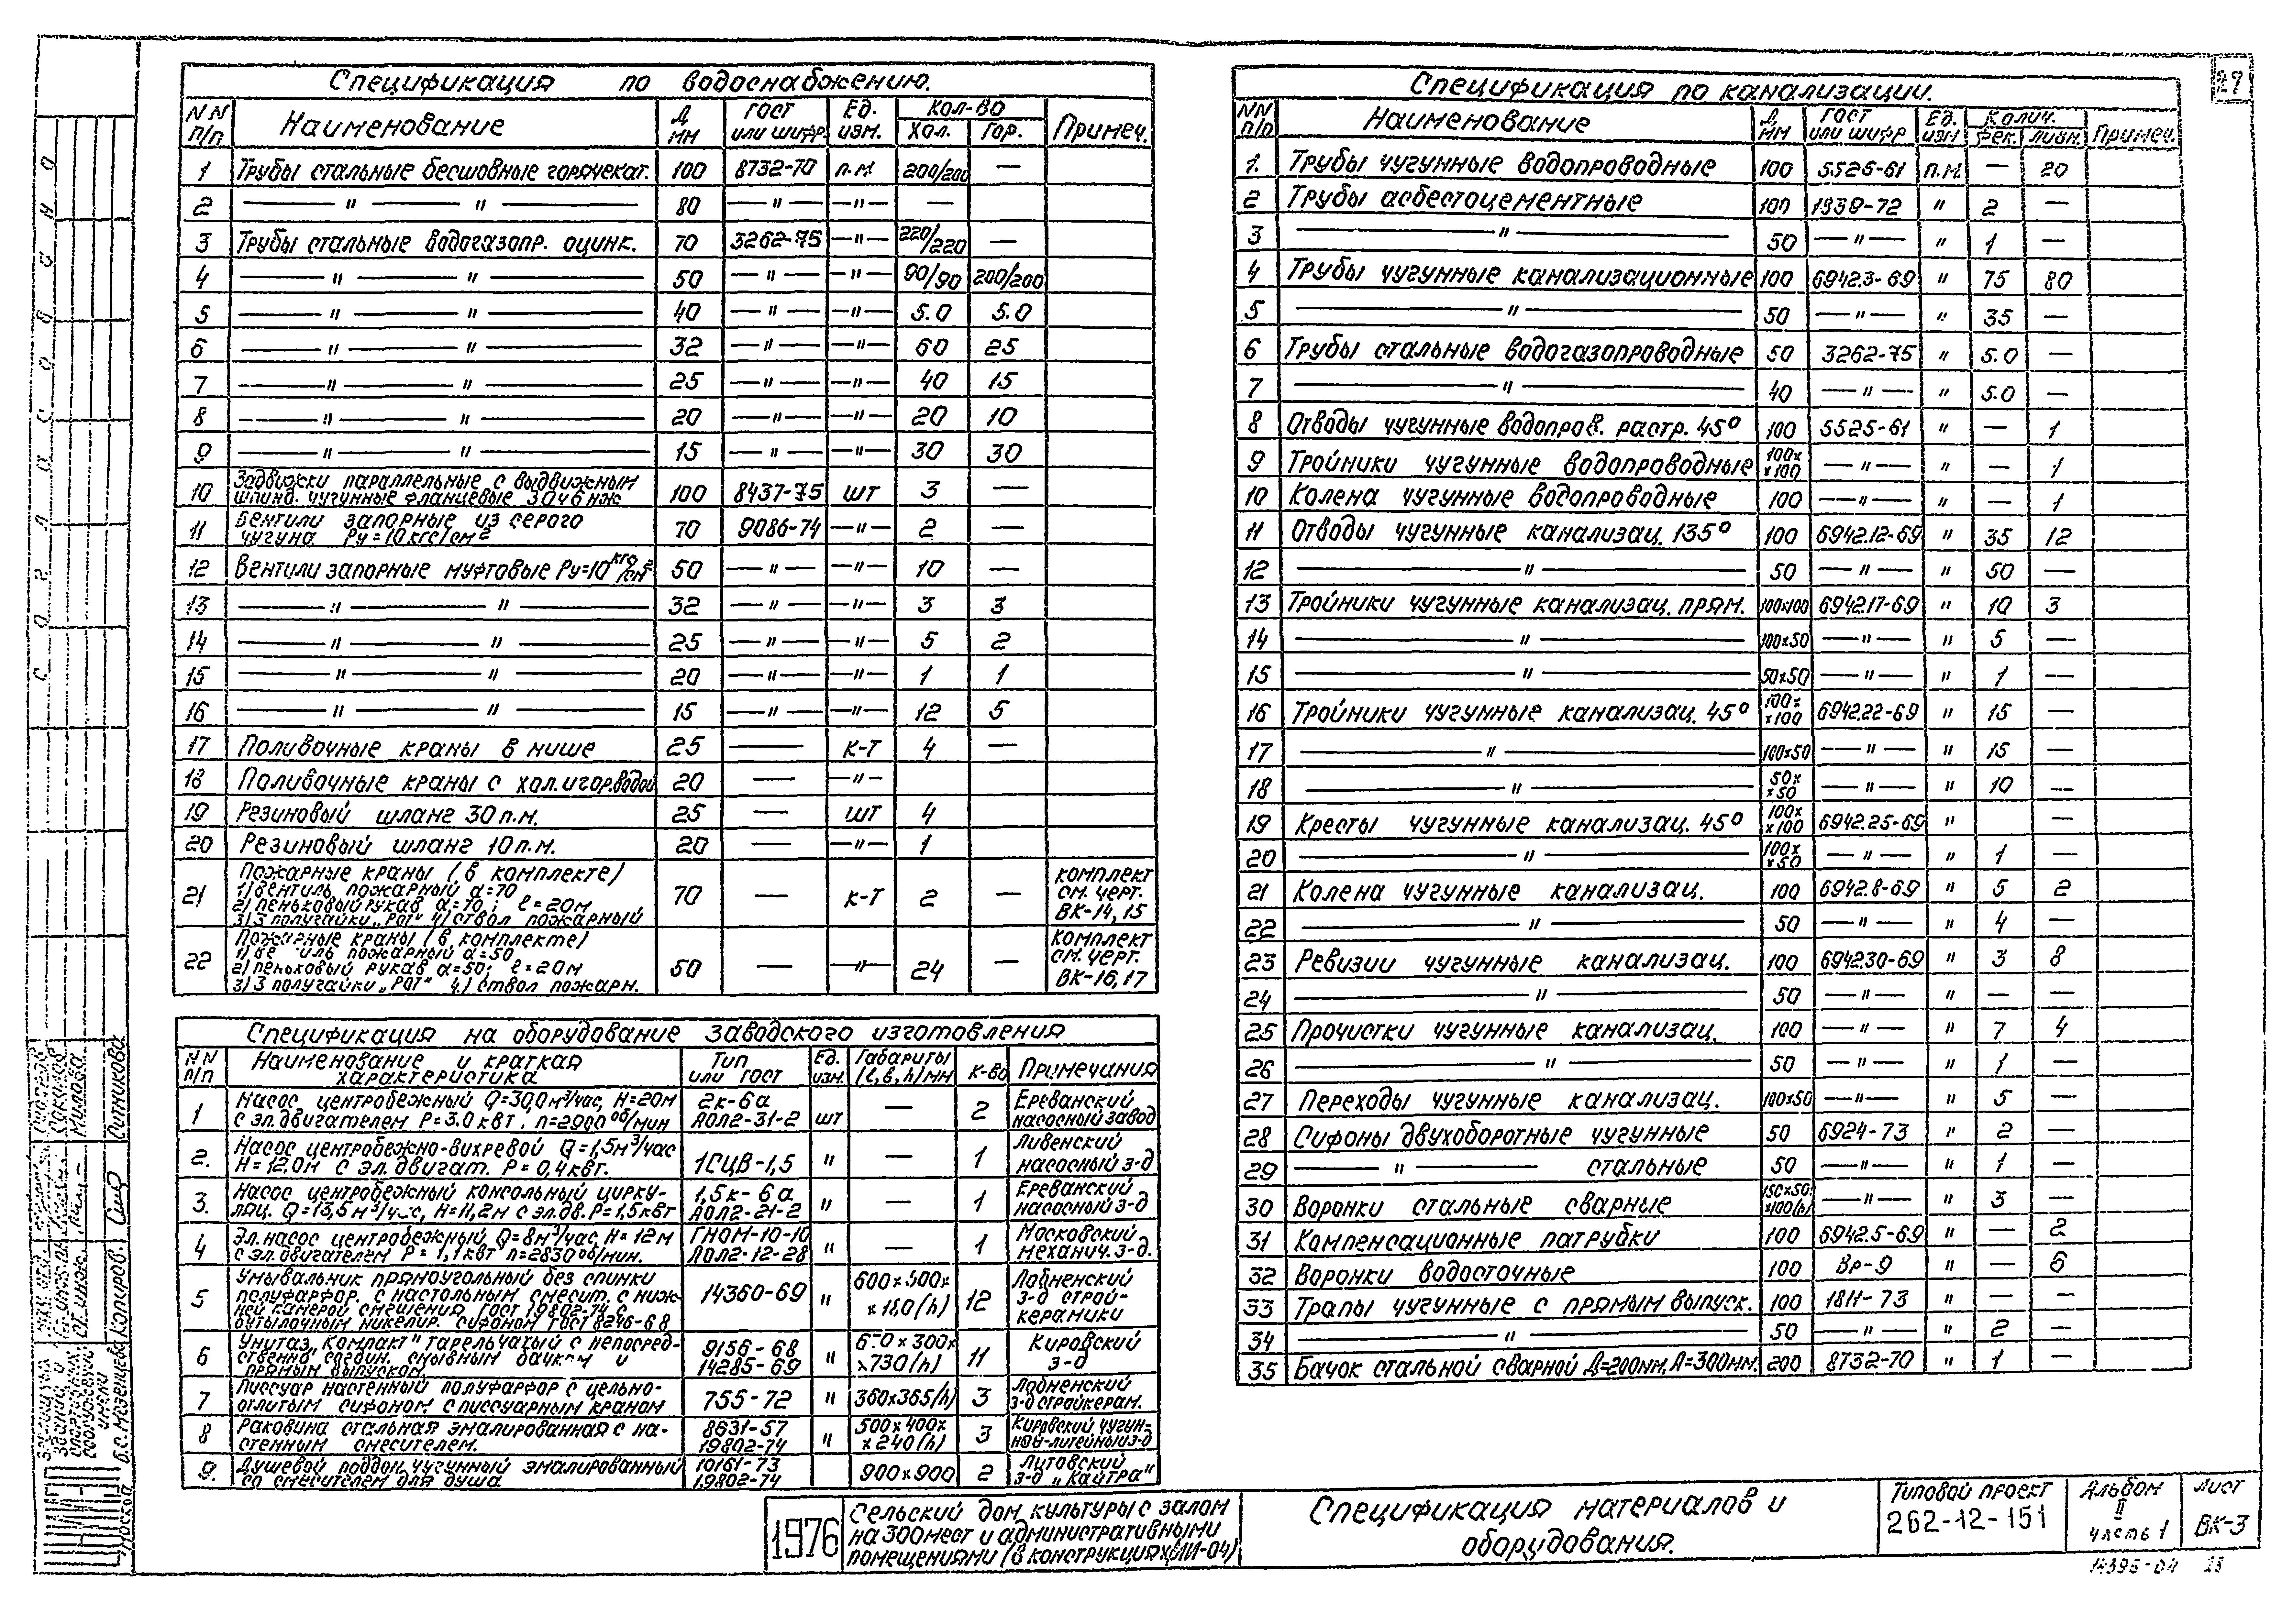 27
Спецификация по водоснабжению.
NN п/п Наименование Д мм ГОСТ или шифр Ед. изм. Кол-во Хол. Гор. Примеч.
1 Трубы стальные бесшовные горячекат. 100 8732-70 п.м 200/200 —
2 — " — " — 80 — " — — " — —
3 Трубы стальные водогазопр. оцинк. 70 3262-75 — " — 220/220 —
4 — " — " — 50 — " — — " — 90/90 200/200
5 — " — " — 40 — " — — " — 5.0 5.0
6 — " — " — 32 — " — — " — 60 25
7 — " — " — 25 — " — — " — 40 15
8 — " — " — 20 — " — — " — 20 10
9 — " — " — 15 — " — — " — 30 30
10 Задвижки параллельные с выдвижным
шпинд. чугунные фланцевые 30ч6нж 100 8437-75 шт 3 —
11 Вентили запорные из серого
чугуна Ру=10кгс/см2 70 9086-74 — " — 2 —
12 Вентили запорные муфтовые Ру=10кгс/см2 50 — " — — " — 10 —
13 — " — " — 32 — " — — " — 3 3
14 — " — " — 25 — " — — " — 5 2
15 — " — " — 20 — " — — " — 1 1
16 — " — " — 15 — " — — " — 12 5
17 Поливочные краны в нише 25 — к-т 4 —
18 Поливочные краны с хол. и гор. водой 20 — — " —
19 Резиновый шланг 30 п.м. 25 — шт 4
20 Резиновый шланг 10 п.м. 20 — — " — 1
21 Пожарные краны (в комплекте)
1) вентиль пожарный d=70
2) пеньковый рукав d=70; ℓ=20м
3) 3 полугайки „РОТ" 4) ствол пожарный 70 — к-т 2 — комплект см. черт. ВК-14, 15
22 Пожарные краны (в комплекте)
1) ве иль пожарный d=50
2) пеньковый рукав d=50; ℓ=20м
3) 3 полугайки „РОТ" 4) ствол пожарн. 50 — — " — 24 — комплект см. черт. ВК-16, 17
Спецификация на оборудование заводского изготовления
NN п/п Наименование и краткая характеристика Тип или ГОСТ Ед. изм. Габариты (ℓ, в, h) мм К-во Примечания
1 Насос центробежный Q=30,0м³/час, Н=20м
с эл. двигателем Р=3.0 квт. n=2900 об/мин 2к-6а АОЛ2-31-2 шт — 2 Ереванский насосный завод
2. Насос центробежно-вихревой Q=1,5м³/час
Н=12.0м с эл. двигат. Р=0,4квт. 1СЦВ-1,5 " — 1 Ливенский насосный з-д
3. Насос центробежный консольный цирку-
ляц. Q=13,5м³/час, Н=11,2м с эл.дв. Р=1,5квт 1,5к-6а АОЛ2-21-2 " — 1 Ереванский насосный з-д
4 Эл. насос центробежный Q=8м³/час, Н=12м
с эл. двигателем Р=1,1квт n=2830 об/мин. ГНОМ-10-10 АОЛ2-12-28 " — 1 Московский механич. з-д.
5 Умывальник прямоугольный без спинки
полуфарфор. с настольным смесит. с ниж-
ней камерой смешения ГОСТ 19802-74 с
бутылочным никелир. сифоном ГОСТ 8246-68 14360-69 " 600×500××180(h) 12 Лобненский з-д строй-керамики
6 Унитаз „Компакт" тарельчатый с непосред-
ственно соедин. смывным бачком и
прямым выпуском. 9156-68 14285-69 " ×300××730(h) 11 Кировский з-д
7 Писсуар настенный полуфарфор с цельно-
отлитым сифоном с писсуарным краном 755-72 " 360×365(h) 3 Лобненский з-д стройкерам.
8 Раковина стальная эмалированная с на-
стенным смесителем. 8631-57 19802-74 " 500×400××240(h) 3 Кировский чугун-но-литейный з-д
9. Душевой поддон чугунный эмалированный
со смесителем для душа 10161-73 19802-74 900×900 2 Литовский з-д „Кайтра"
Спецификация по канализации.
NN п/п Наименование Д мм ГОСТ или шифр Ед. изм Колич. фек. ливн. Примеч.
1. Трубы чугунные водопроводные 100 5525-61 п.м — 20
2 Трубы асбестоцементные 100 1839-72 " 2 —
3 — " — 50 — " — " 1 —
4 Трубы чугунные канализационные 100 6942.3-69 " 75 80
5 — " — 50 — " — " 35 —
6 Трубы стальные водогазопроводные 50 3262-75 " 5.0 —
7 — " — 40 — " — " 5.0 —
8 Отводы чугунные водопров. растр. 45° 100 5525-61 " — 1
9 Тройники чугунные водопроводные 100××100 — " — " — 1
10 Колена чугунные водопроводные 100 — " — " — 1
11 Отводы чугунные канализац. 135° 100 6942.12-69 " 35 12
12 — " — 50 — " — " 50 —
13 Тройники чугунные канализац. прям. 100×100 6942.17-69 " 10 3
14 — " — 100×50 — " — " 5 —
15 — " — 50×50 — " — " 1 —
16 Тройники чугунные канализац. 45° 100××100 6942.22-69 " 15 —
17 — " — 100×50 — " — " 15 —
18 — " — 50××50 — " — " 10 —
19 Кресты чугунные канализац. 45° 100××100 6942.25-69 " —
20 — " — 100××50 — " — " 1 —
21 Колена чугунные канализац. 100 6942.8-69 " 5 2
22 — " — 50 — " — " 4 —
23 Ревизии чугунные канализац. 100 6942.30-69 " 3 8
24 — " — 50 — " — " — —
25 Прочистки чугунные канализац. 100 — " — " 7 4
26 — " — 50 — " — " 1 —
27 Переходы чугунные канализац. 100×50 — " — " 5 —
28 Сифоны двухоборотные чугунные 50 6924-73 " 2 —
29 — " — стальные 50 — " — " 1 —
30 Воронки стальные сварные 150×50××100(h) — " — " 3 —
31 Компенсационные патрубки 100 6942.5-69 " — 2
32 Воронки водосточные 100 Вр-9 " — 6
33 Трапы чугунные с прямым выпуск. 100 1811-73 " — —
34 — " — 50 — " — " 2 —
35 Бачок стальной сварной Д=200мм, А=300мм. 200 8732-70 " 1 —
1976
Сельский дом культуры с залом
на 300 мест и административными
помещениями (в конструкциях ИИ-04)
Спецификация материалов и
оборудования.
Типовой проект
262-12-151
Альбом
II
часть 1
Лист
ВК-3
14395-04 28
Согласовано
Милова
Ситникова
Ст. инж.
Копиров.
Б.С. Мезенцева
Москва